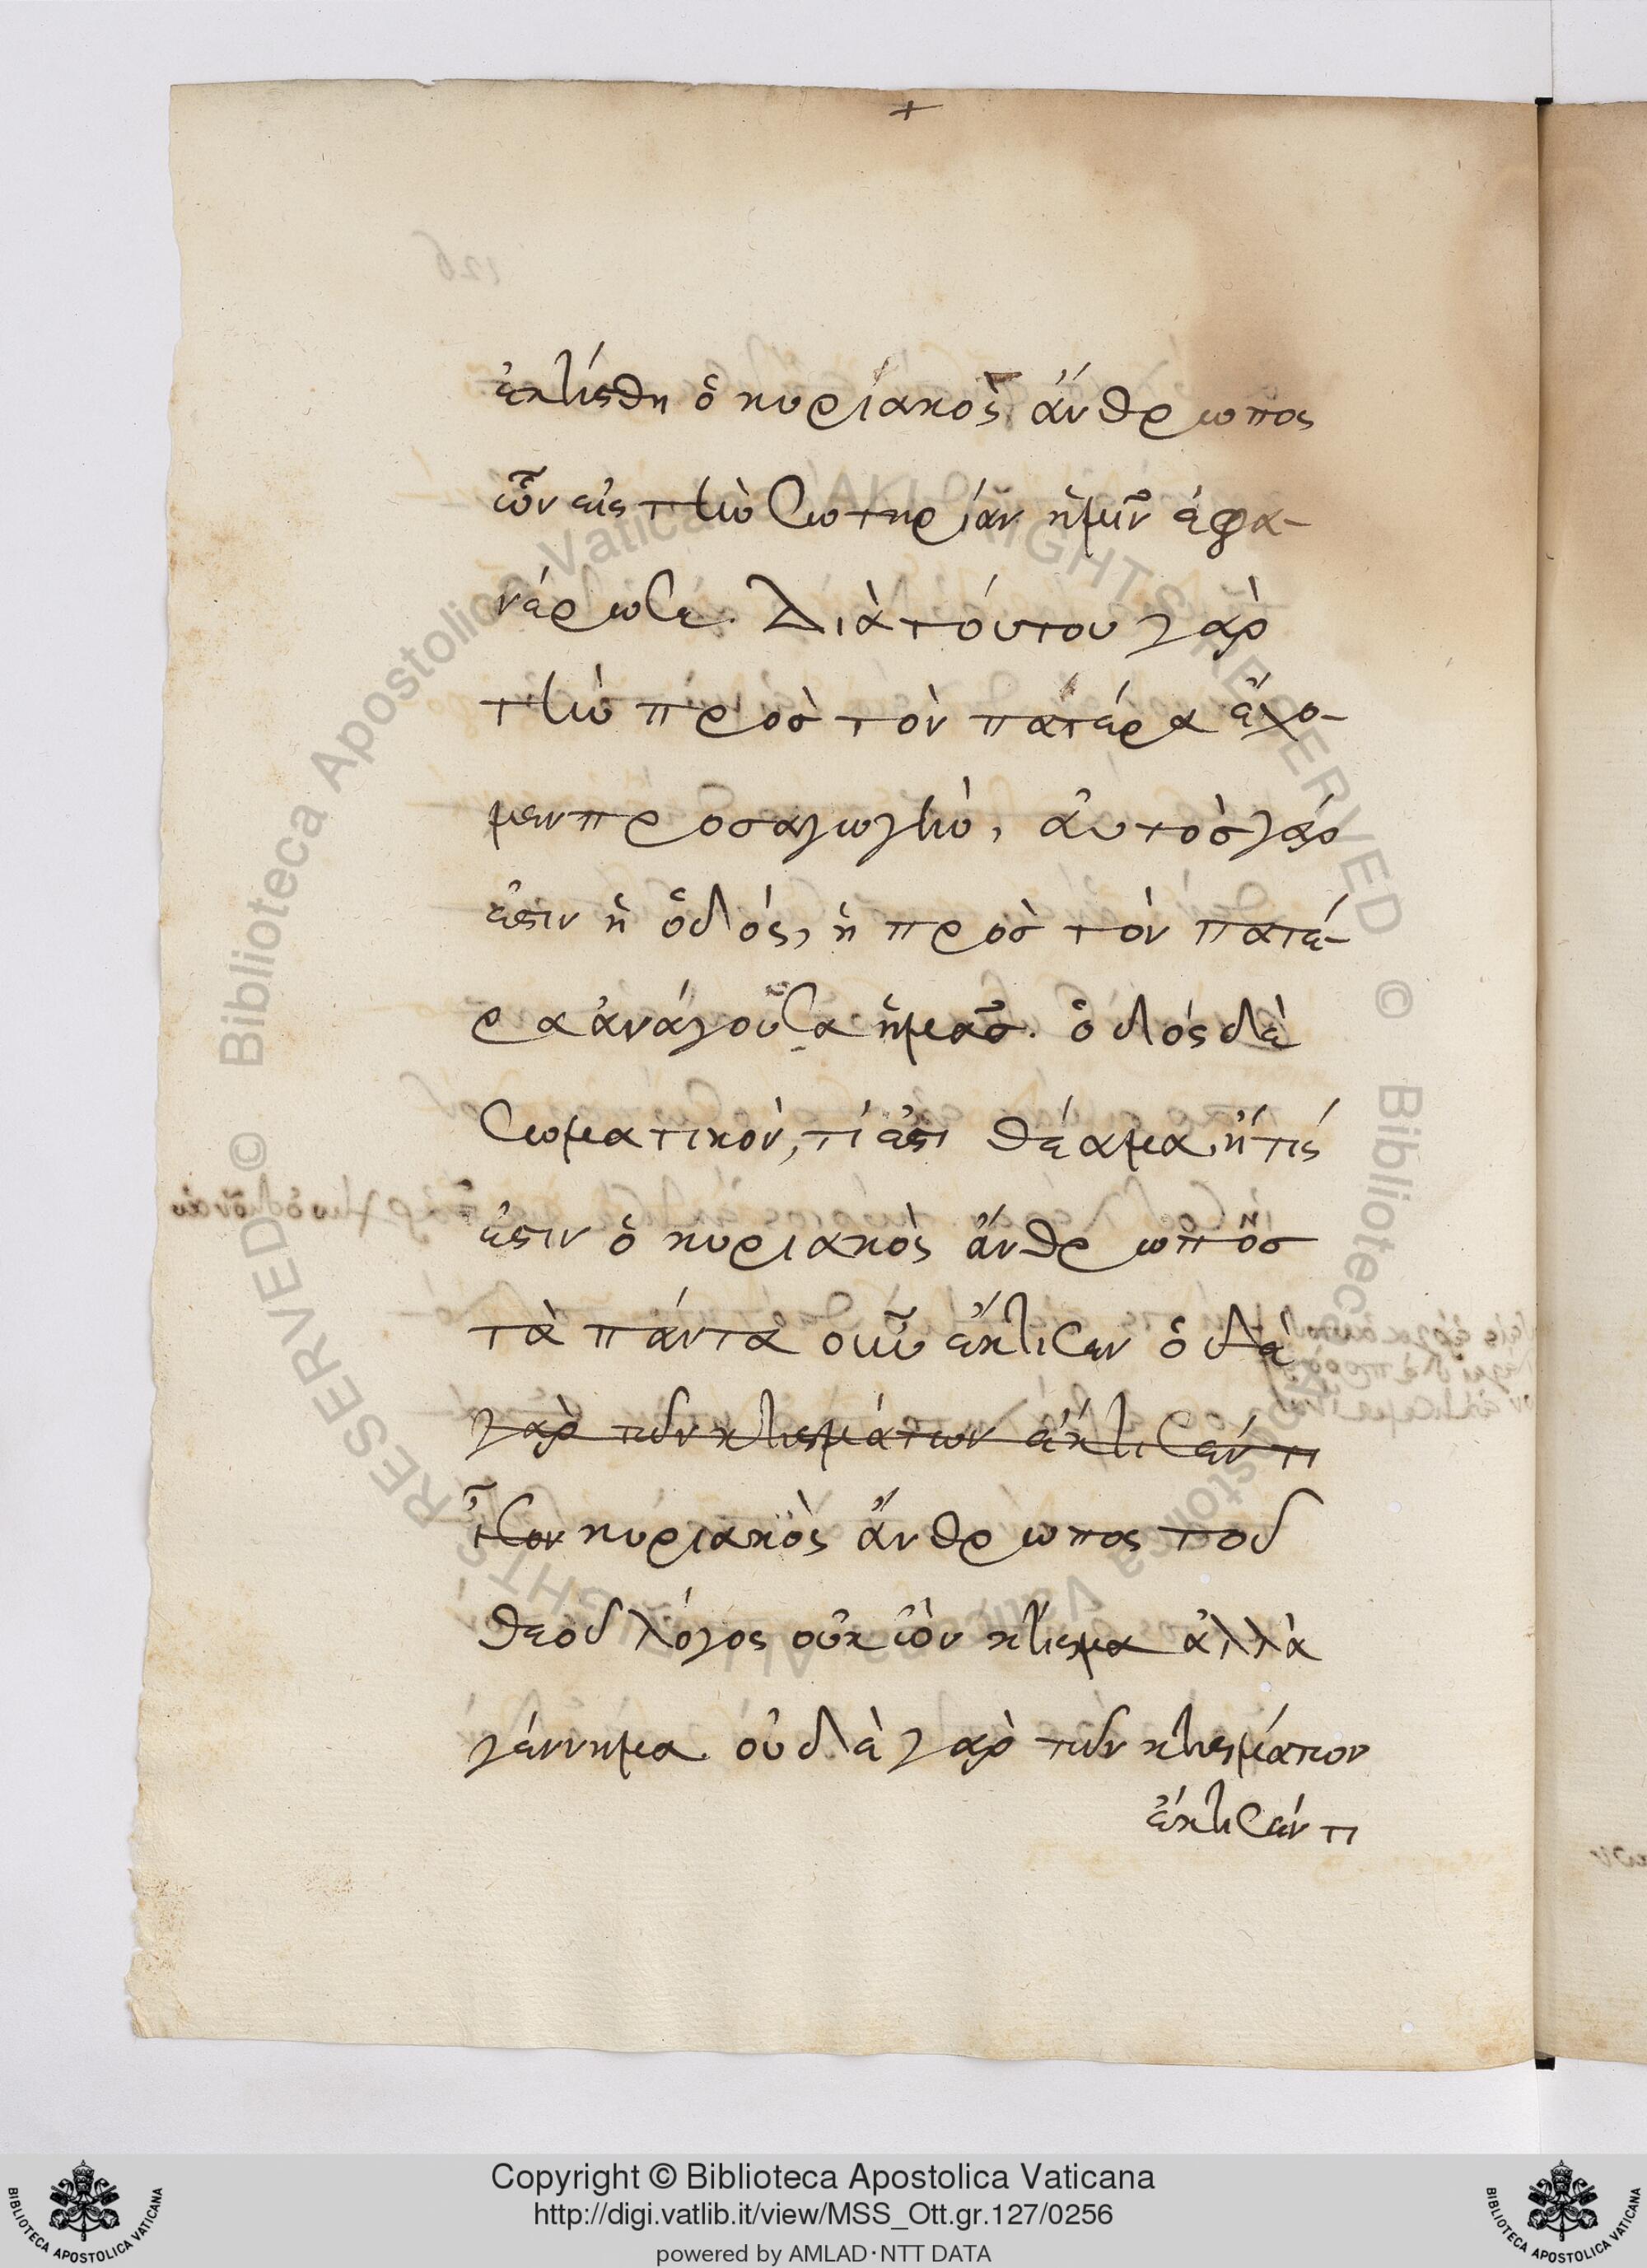 ἐκτίσθη ὁ κυρίακὸς ἄνθρωπος
ὧν εἰς τὴν σωτηρίαν ἡμῖν ἐφα-
νέρωσε. Διὰ τούτου γὰρ
τὴν πρὸς τὸν πατέρα ἔχο-
μεν προσαγωγὴν, ἀυτὸς γάρ
ἐστιν ἡ ὁδός, ἡ πρὸς τὸν πατέ-
ρα ἀνάγουσα ἡμᾶς. ὁδός δὲ
σωματικὸν, τί ἐστι θέαμα, ἥτις
ἐστιν ὁ κυριακὸς ἄνθρωπος
τὰ πάντα οὖν ἔκτισεν ὁ δὲ
γὰρ τῶν κτισμάτων ἔκτισέν τι
κυριακὸς ἄνθρωπος τοῦ
θεοῦ λόγος οὐκ ὢν κτίσμα ἀλλὰ
γέννημα οὐδὲ γὰρ τῶν κτισμάτων
ἔκτισέν τι
Copyright © Biblioteca Apostolica Vaticana
http://digi.vatlib.it/view/MSS_Ott.gr.127/0256
powered by AMLAD·NTT DATA
BIBLIOTECA APOSTOLICA VATICANA
BIBLIOTECA APOSTOLICA VATICANA